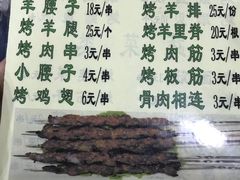 羊腰子 18元/串 烤羊排 25元/份
烤羊腿 25元/个 烤羊里脊 20元/根
烤肉串 3元/串 烤肉筋 3元/串
小腰子 4元/串 烤板筋 3元/串
烤鸡翅 6元/串 骨肉相连 3元/串